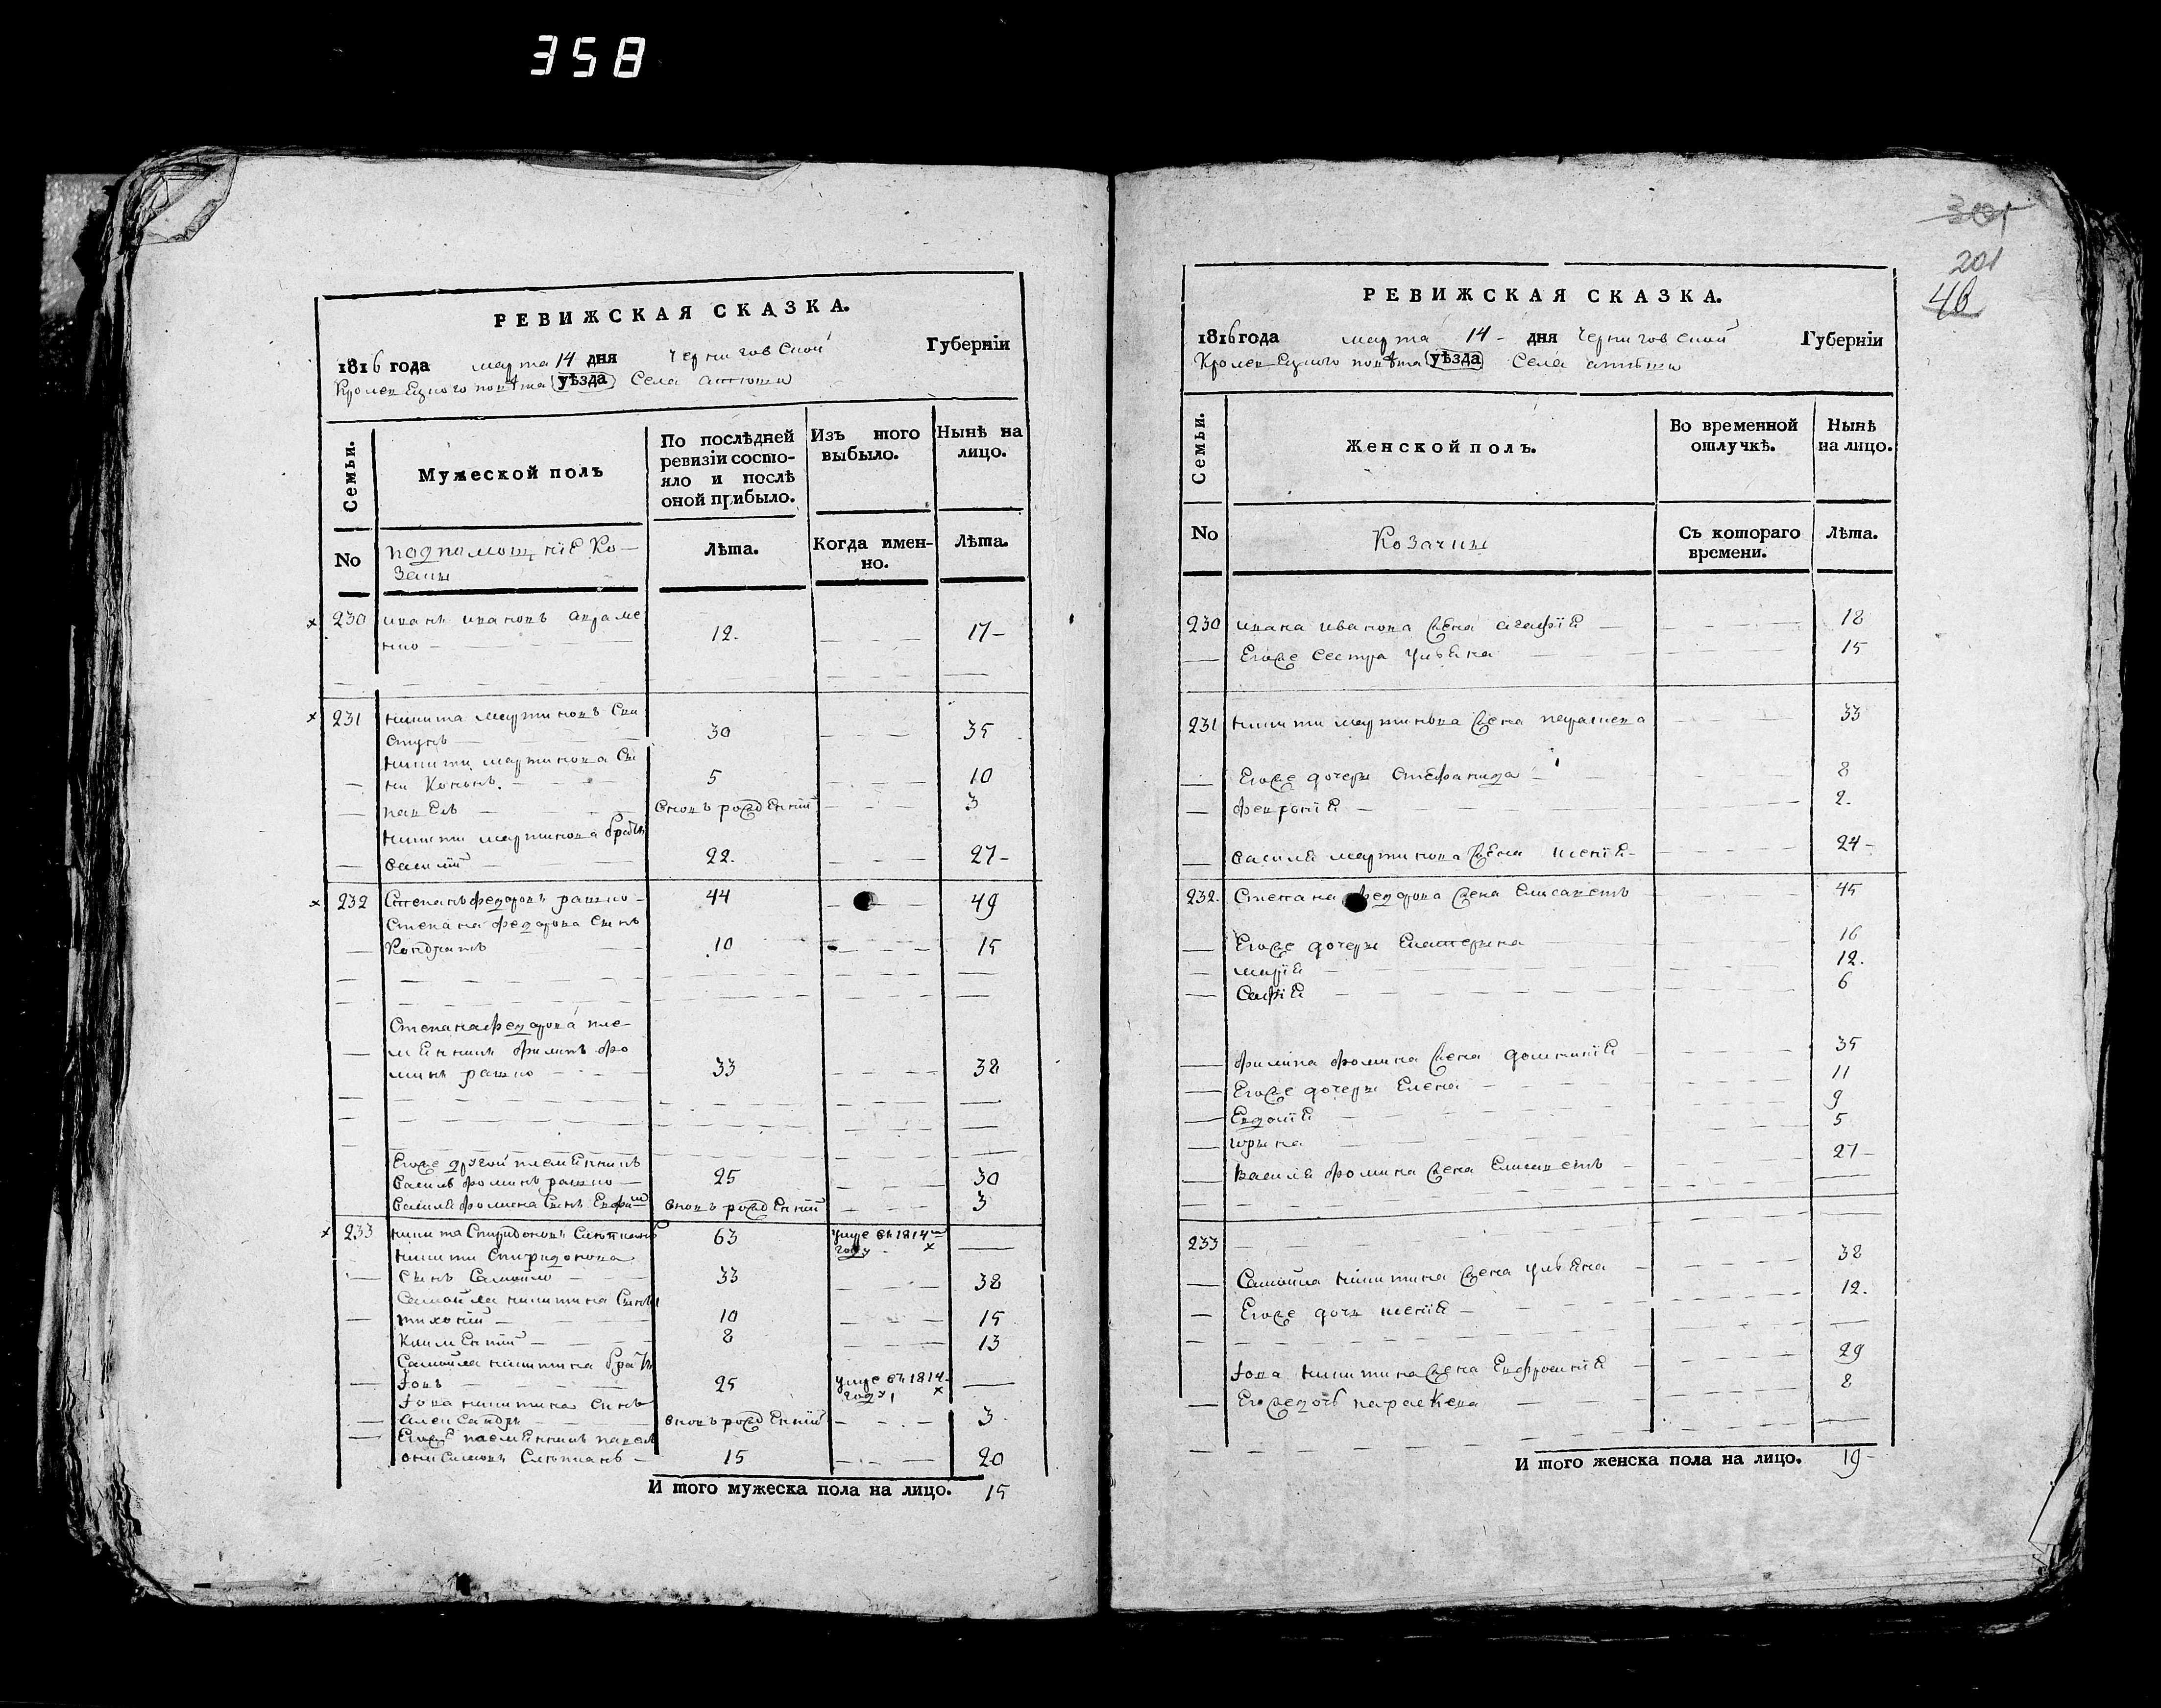 358
РЕВИЖСКАЯ СКАЗКА.
1816 года марта 14 дня Черниговской Губерніи
Кролевецкого повѣта уѣзда Села
Семьи.
Мужеской полъ
По послѣдней ревизіи состо-
яло и послѣ
оной прибыло.
Изъ того
выбыло.
Нынѣ на
лицо.
No
подпомощніе Ко-
заки
Лѣта.
Когда имен-
но.
Лѣта.
230 иванъ ивановъ авраме
нко 12. 17
231 никита мартиновъ Сви
стунъ 30 35
никити мартинова Сы
ни 5 10
павелъ вновъ рожденній 3
никити мартинова братъ
василій 22. 27
232 Степанъ федоровъ рашко 44 49
Степана федорова сынъ
Кондратъ 10 15
Степана федорова пле-
менникъ филипъ фо
минъ рашко 33 38
Егоже другой племенникъ
василь фоминъ рашко 25 30
василя фомина сынъ вновъ рожденній 3
233 никита Спиридоновъ 63 умре въ 1814
году
никити Спиридонова
сынъ Самойло 33 38
Самойла никитина сыны
тихоній 10 15
климентій 8 13
Самойла никитина братъ
Іовъ 25 умре въ 1814
году
Іова никитина сынъ
александръ вновъ рожденній 3
Егоже племенникъ павелъ
15 20
И того мужеска пола на лицо. 15
301
201
РЕВИЖСКАЯ СКАЗКА.
1816 года марта 14 дня Черниговской Губерніи
Кролевецкого повѣта уѣзда Села
Семьи.
Женской полъ.
Во временной
отлучкѣ.
Нынѣ
на лицо.
No
Козачки
Съ котораго
времени.
Лѣта.
230 ивана иванова жена агафія 18
Егоже сестра улъяна 15
231 никити мартинова жена параскева 33
Егоже дочери Стефанида 8
февронія 2.
василя мартинова жена ксенія 24
232. Степана федорова жена елисаветъ 45
Егоже дочери Екатерина 16
марія 12.
Софія 6
филипа фомина жена домникія 35
Егоже дочери Елена 11
Евдокія 9
ирина 5
василя фомина жена Елисаветъ 27
233
Самойла никитина жена улъяна 38
Егоже дочь ксенія 12.
Іова никитина жена Евфросинія 29
Егоже дочь параскева 8
И того женска пола на лицо. 19